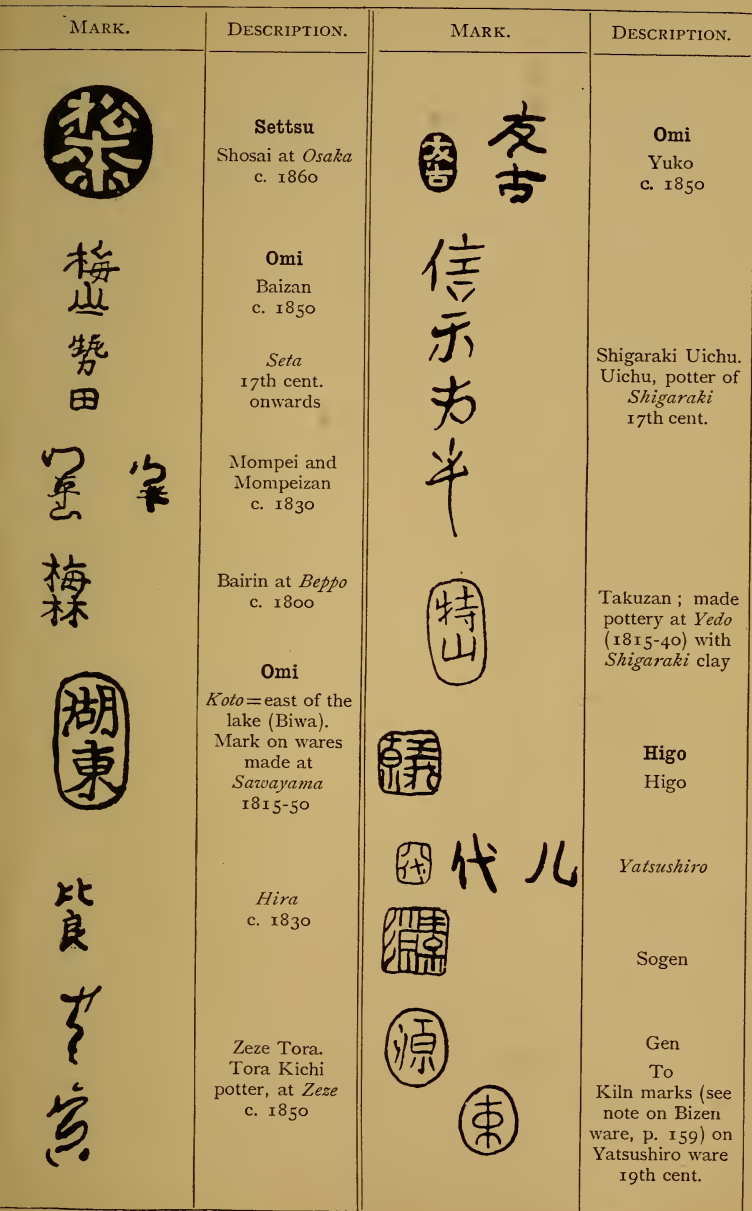 MARK.
DESCRIPTION.
松木
Settsu
Shosai at Osaka
c. 1860
梅山
Omi
Baizan
c. 1850
勢田
Seta
17th cent.
onwards
Mompei and
Mompeizan
c. 1830
梅林
Bairin at Beppo
c. 1800
湖東
Omi
Koto=east of the
lake (Biwa).
Mark on wares
made at
Sawayama
1815-50
比良
Hira
c. 1830
寅
Zeze Tora.
Tora Kichi
potter, at Zeze
c. 1850
MARK.
DESCRIPTION.
友古
友古
Omi
Yuko
c. 1850
信
Shigaraki Uichu.
Uichu, potter of
Shigaraki
17th cent.
特山
Takuzan ; made
pottery at Yedo
(1815-40) with
Shigaraki clay
Higo
Higo
代 代 八
Yatsushiro
Sogen
源
Gen
東
To
Kiln marks (see
note on Bizen
ware, p. 159) on
Yatsushiro ware
19th cent.